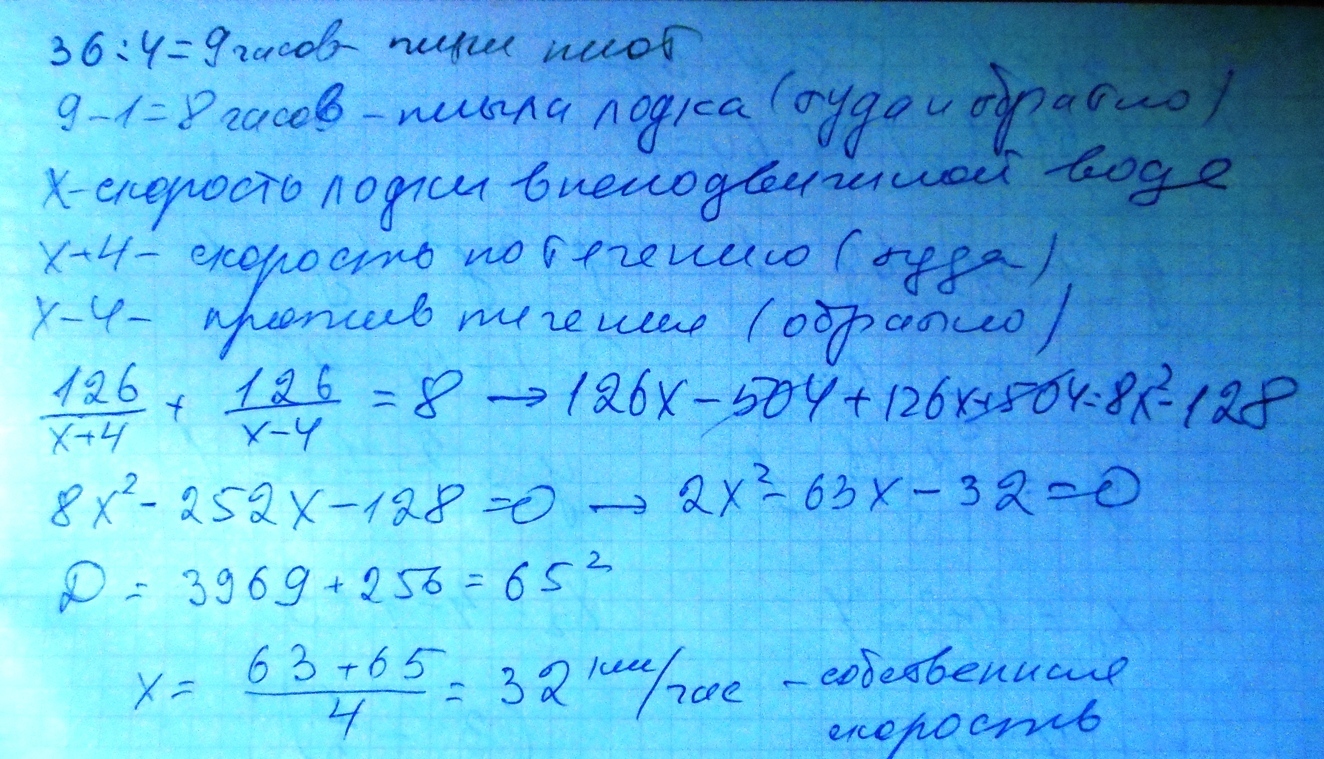 36:4=9часов- плыл плот
9-1=8часов-плыла лодка (туда и обратно)
X-скорость лодки в неподвижной воде
X+4- скорость по течению (туда)
X-4- против течения (обратно)
126/(x+4) + 126/(x-4) = 8 → 126X-504+126X+504=8X²-128
8X²-252X-128=0 → 2X²-63X-32=0
D = 3969+256=65²
X= (63+65)/4 = 32 км/час - собственная
скорость